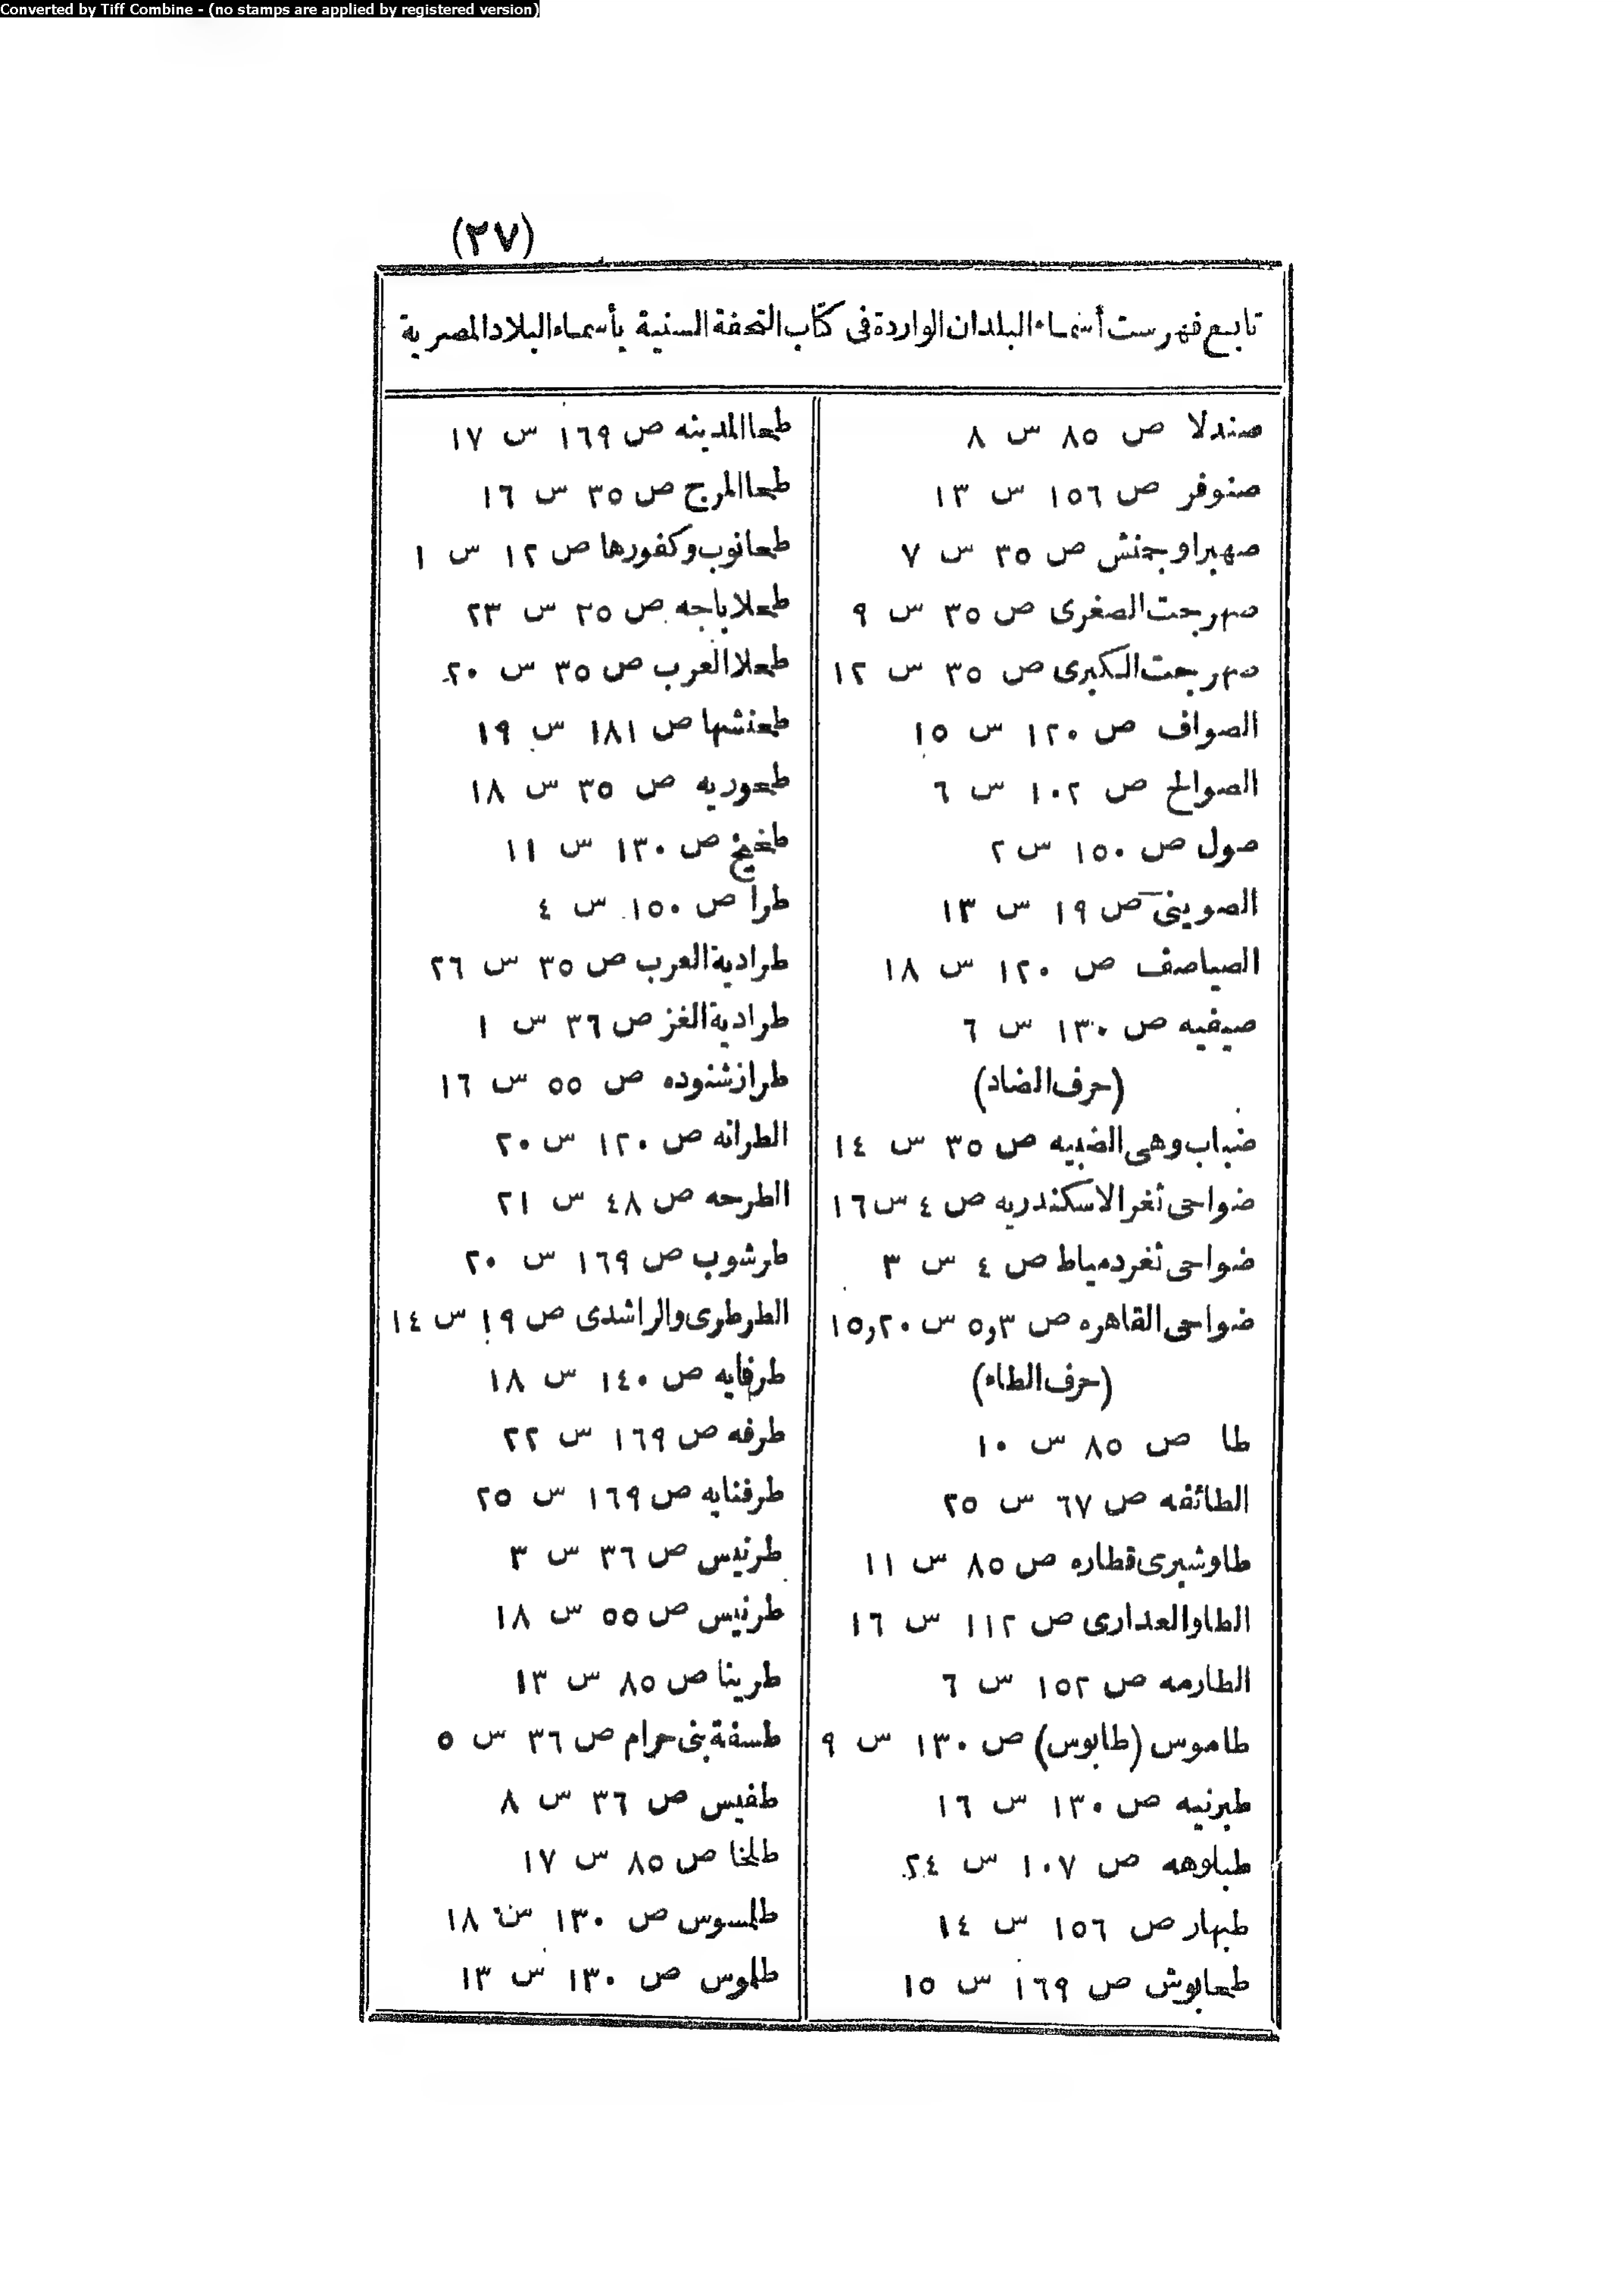 Converted by Tiff Combine - (no stamps are applied by registered version)
(٢٧)
تابع فهرست أسماء البلدان الواردة فى كتاب التحفة السنية بأسماء البلاد المصرية
صندلا ص ٨٥ س ٨
صنوفر ص ١٥٦ س ١٣
صهبرا وجمنش ص ٣٥ س ٧
صهرجت الصغرى ص ٣٥ س ٩
صهرجت الكبرى ص ٣٥ س ١٢
الصواف ص ١٢٠ س ١٥
الصوالح ص ١٠٢ س ٦
صول ص ١٥٠ س ٢
الصوينى ص ١٩ س ١٣
الصياصف ص ١٢٠ س ١٨
صيفيه ص ١٣٠ س ٦
(حرف الضاد)
ضباب وهى الضبيه ص ٣٥ س ١٤
ضواحى ثغر الاسكندريه ص ٤ س ١٦
ضواحى ثغر دمياط ص ٤ س ٣
ضواحى القاهره ص ٥,٣ س ١٥,٢٠
(حرف الطاء)
طا ص ٨٥ س ١٠
الطائفه ص ٦٧ س ٢٥
طا وشبرى قطاره ص ٨٥ س ١١
الطا والعدارى ص ١١٢ س ١٦
الطارمه ص ١٥٢ س ٦
طاموس (طابوس) ص ١٣٠ س ٩
طبرنيه ص ١٣٠ س ١٦
طبلوهه ص ١٠٧ س ٢٤
طبهار ص ١٥٦ س ١٤
طحابوش ص ١٦٩ س ١٥
طحا المدينه ص ١٦٩ س ١٧
طحا المرج ص ٣٥ س ١٦
طحانوب وكفورها ص ١٢ س ١
طحلا باجه ص ٢٥ س ٢٣
طحلا العرب ص ٣٥ س ٢٠
طحنشها ص ١٨١ س ١٩
طحوريه ص ٣٥ س ١٨
طخيخ ص ١٣٠ س ١١
طرا ص ١٥٠ س ٤
طرادية العرب ص ٣٥ س ٢٦
طرادية الغز ص ٣٦ س ١
طراز شنوده ص ٥٥ س ١٦
الطرانه ص ١٢٠ س ٢٠
الطرحه ص ٤٨ س ٢١
طرشوب ص ١٦٩ س ٢٠
الطرطرى والراشدى ص ١٩ س ١٤
طرفايه ص ١٤٠ س ١٨
طرفه ص ١٦٩ س ٢٢
طرفنايه ص ١٦٩ س ٢٥
طرنيس ص ٣٦ س ٣
طرنيس ص ٥٥ س ١٨
طرينا ص ٨٥ س ١٣
طسفة بنى حرام ص ٣٦ س ٥
طفيس ص ٣٦ س ٨
طلخا ص ٨٥ س ١٧
طلسوس ص ١٣٠ س ١٨
طلموس ص ١٣٠ س ١٣